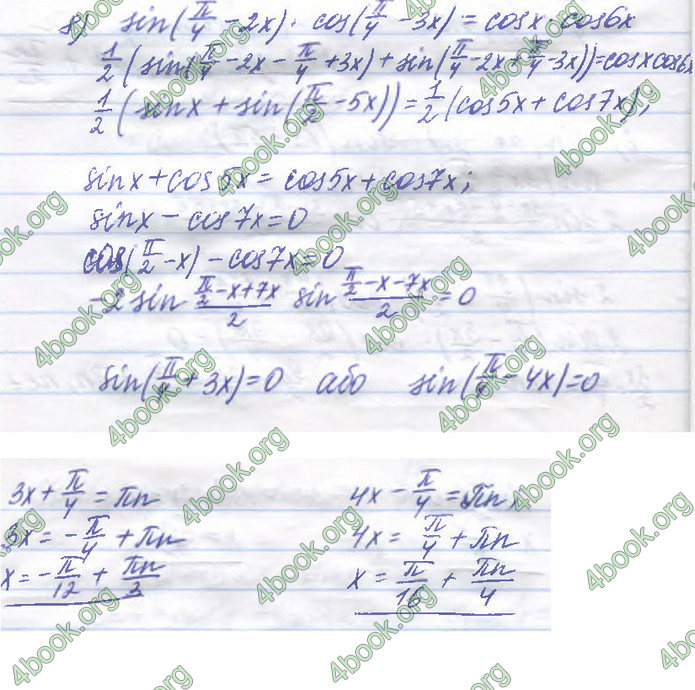 8) sin(π/4 - 2x) · cos(π/4 - 3x) = cosx · cos6x
1/2 (sin(π/4 - 2x - π/4 + 3x) + sin(π/4 - 2x + π/4 - 3x)) = cosx cos6x
1/2 (sinx + sin(π/2 - 5x)) = 1/2 (cos5x + cos7x);
sinx + cos5x = cos5x + cos7x;
sinx - cos7x = 0
cos(π/2 - x) - cos7x = 0
-2 sin (π/2 - x + 7x)/2 sin (π/2 - x - 7x)/2 = 0
sin(π/4 + 3x) = 0 або sin(π/4 - 4x) = 0
3x + π/4 = πn 4x - π/4 = πn
3x = -π/4 + πn 4x = π/4 + πn
x = -π/12 + πn/3 x = π/16 + πn/4
4book.org